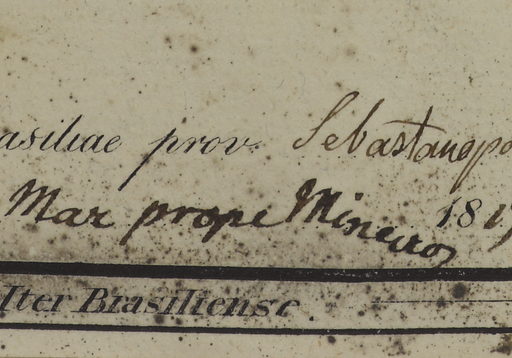 asiliae prov. Sebastianop
Mar prope Mineiros 181
Iter Brasiliense.